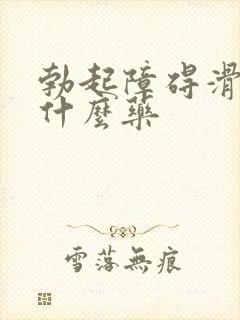 勃起障碍滑
什麼药
雪落無痕